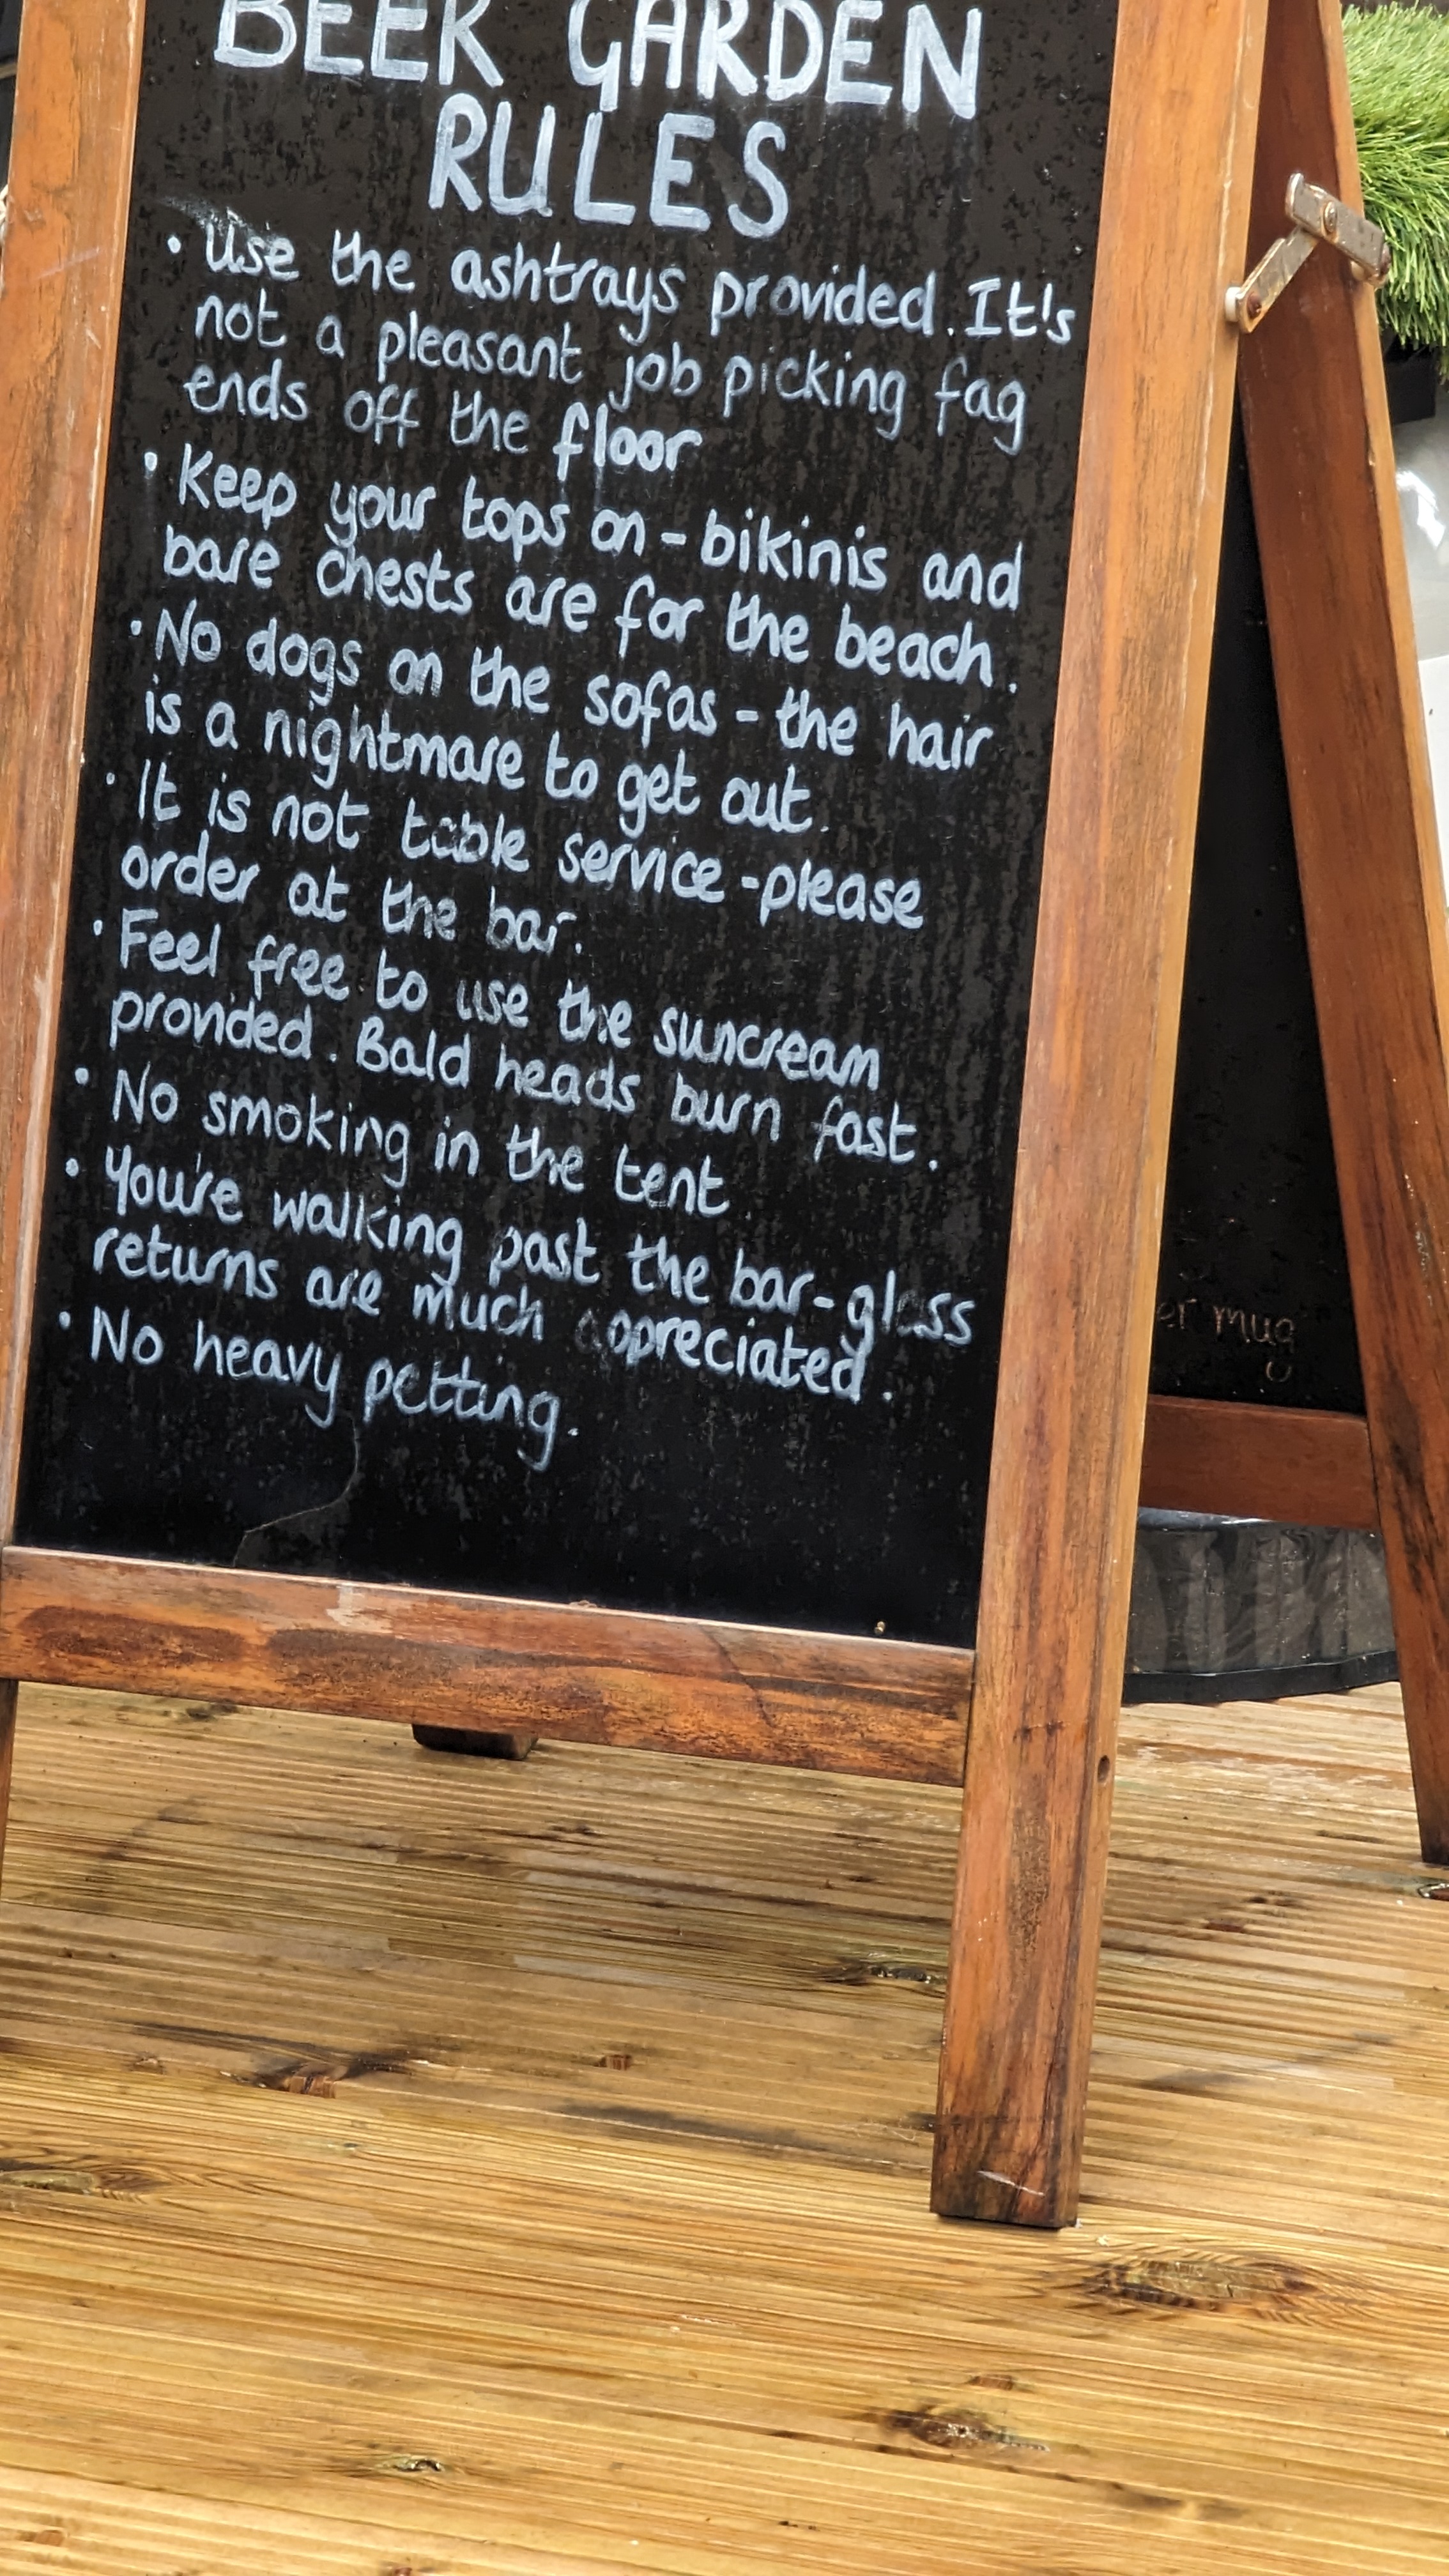 BEER GARDEN
RULES
• Use the ashtrays provided. It's
not a pleasant job picking fag
ends off the floor
• Keep your tops on - bikinis and
bare chests are for the beach.
• No dogs on the sofas - the hair
is a nightmare to get out.
• It is not table service - please
order at the bar.
• Feel free to use the suncream
provided. Bald heads burn fast.
• No smoking in the tent
• You're walking past the bar - glass
returns are much appreciated.
• No heavy petting.
mug